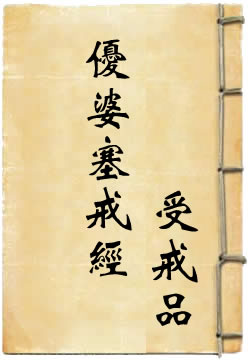 優婆塞戒經
受戒品